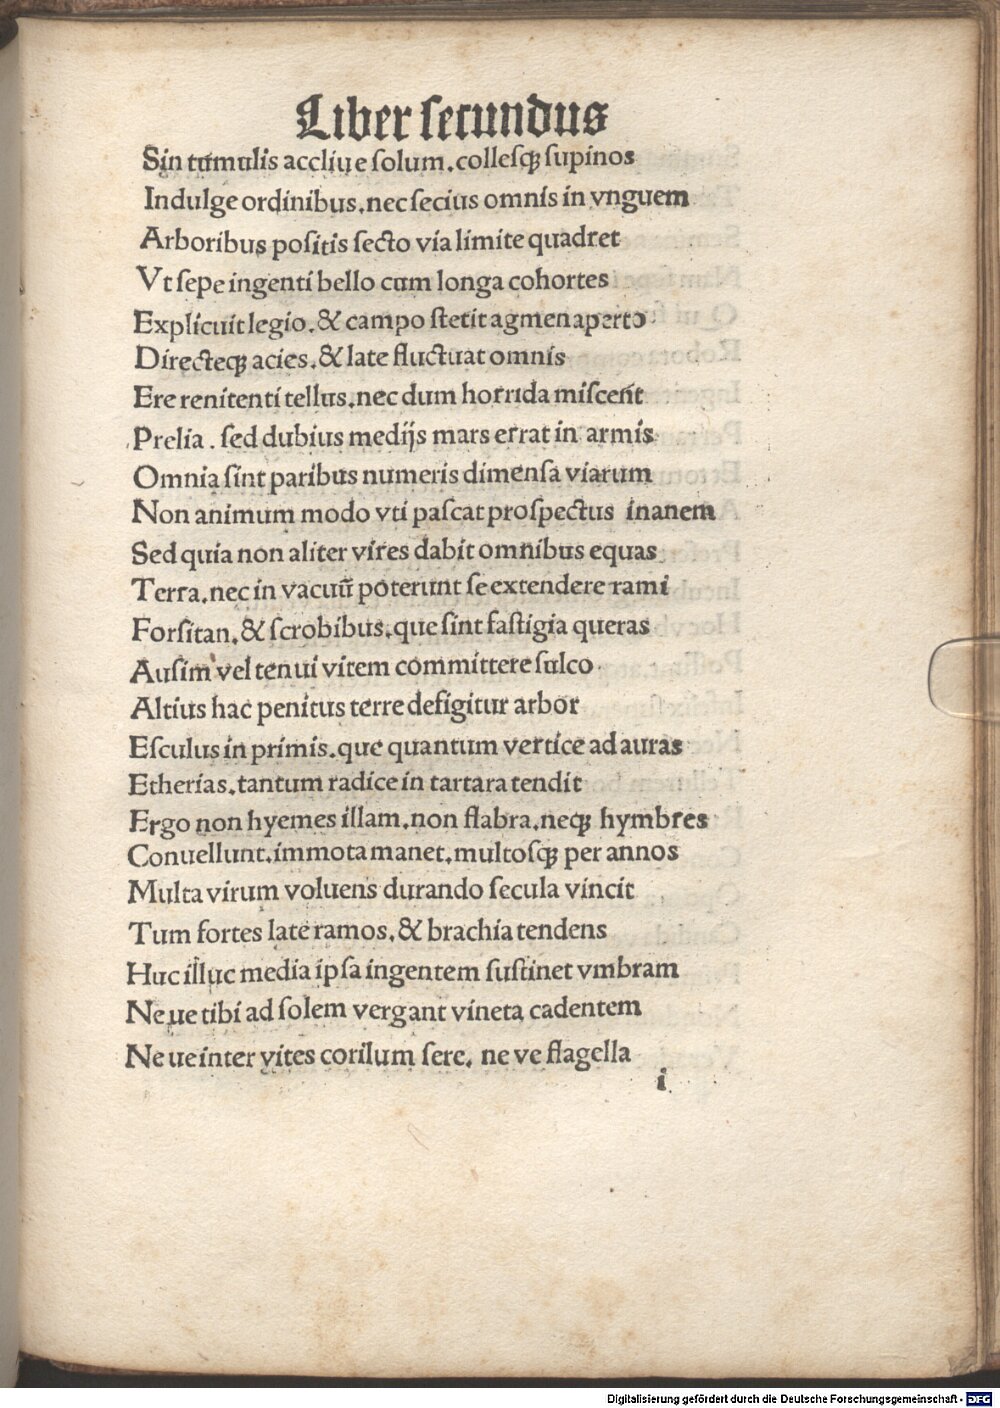 Liber ſecundus
Sin tumulis accliue ſolum.colleſqꝫ ſupinos
Indulge ordinibus.nec ſecius omnis in vnguem
Arboribus poſitis ſecto via limite quadret
Vt ſepe ingenti bello cum longa cohortes
Explicuit legio.& campo ſtetit agmen aperto.
Directeqꝫ acies.& late fluctuat omnis
Ere renitenti tellus.nec dum horrida miſcent
Prelia. ſed dubius medijs mars errat in armis
Omnia ſint paribus numeris dimenſa viarum
Non animum modo vti paſcat proſpectus inanem
Sed quia non aliter vires dabit omnibus equas
Terra.nec in vacuū poterunt ſe extendere rami
Forſitan.& ſcrobibus.que ſint faſtigia queras
Auſim vel tenui vitem committere ſulco.
Altius hac penitus terre defigitur arbor
Eſculus in primis.que quantum vertice ad auras
Etherias.tantum radice in tartara tendit
Ergo non hyemes illam.non flabra.neqꝫ hymbres
Conuellunt.immota manet.multoſqꝫ per annos
Multa virum voluens durando ſecula vincit
Tum fortes late ramos.& brachia tendens
Huc illuc media ipſa ingentem ſuſtinet vmbram
Ne ue tibi ad ſolem vergant vineta cadentem
Ne ue inter vites corilum ſere. ne ve flagella
i
Digitalisierung gefördert durch die Deutsche Forschungsgemeinschaft - DFG